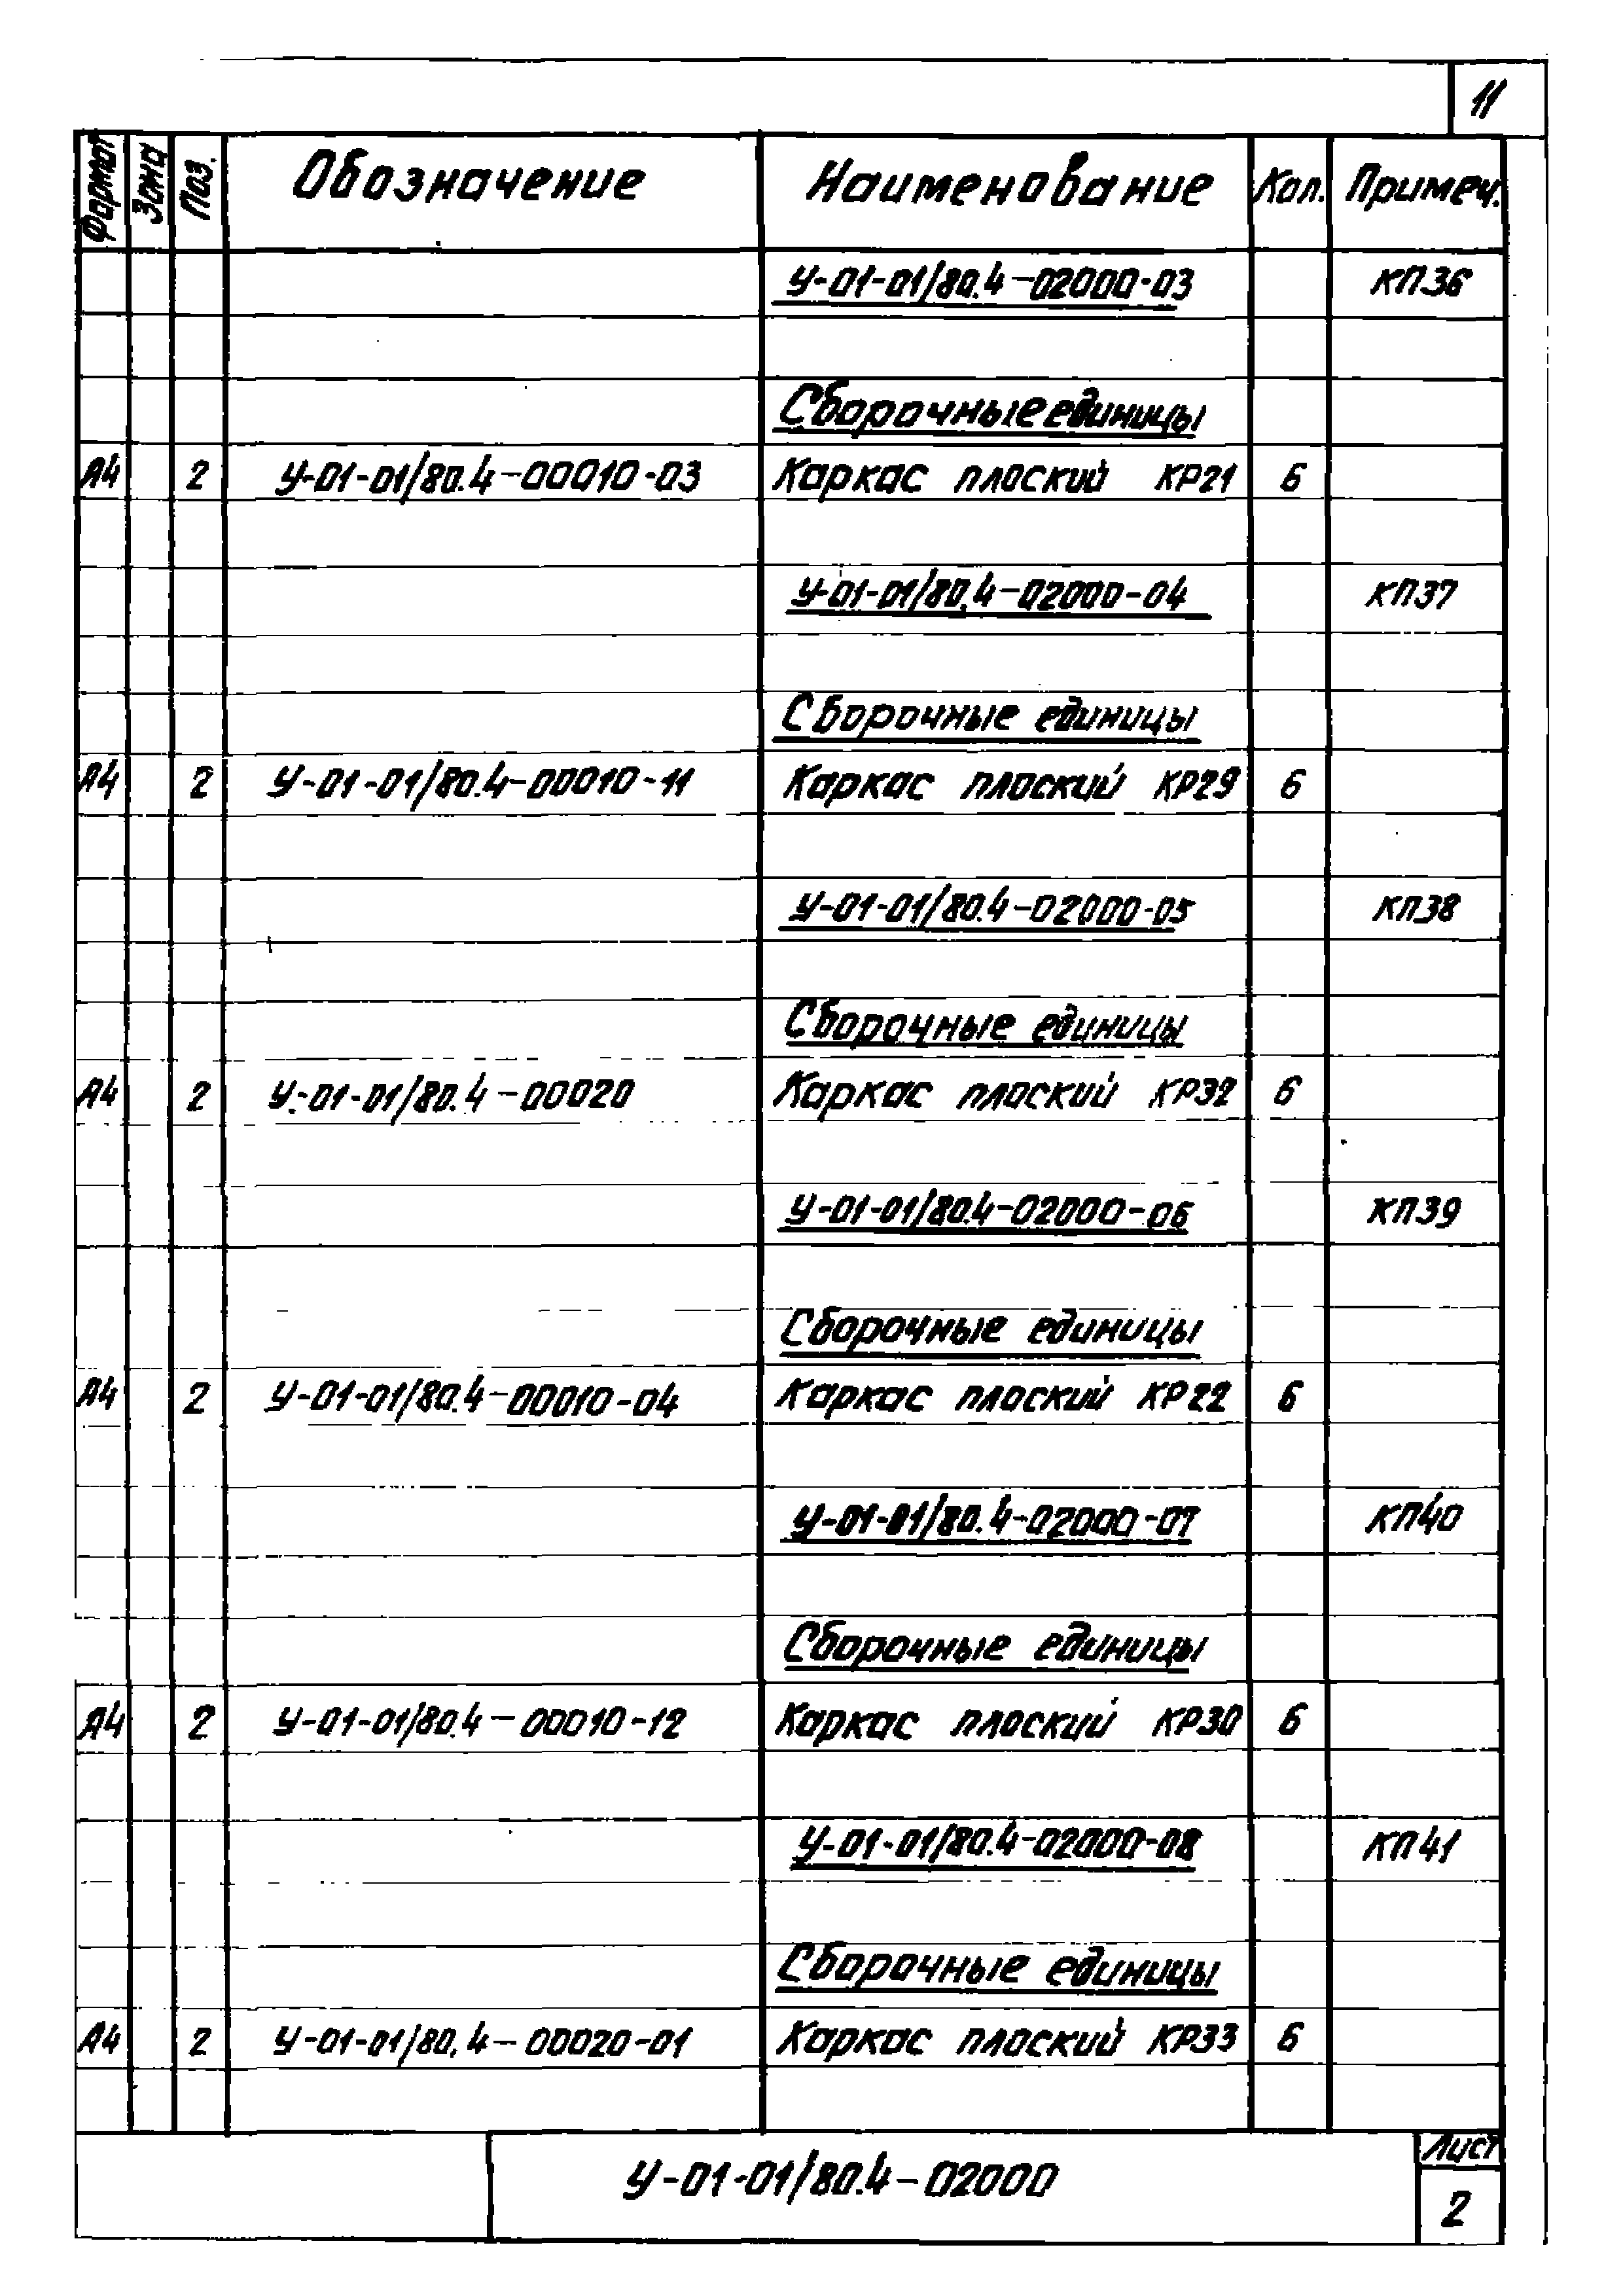 11
Формат Зона Поз. Обозначение Наименование Кол. Примеч.
У-01-01/80.4-02000-03 КП36
Сборочные единицы
А4 2 У-01-01/80.4-00010-03 Каркас плоский КР21 6
У-01-01/80.4-02000-04 КП37
Сборочные единицы
А4 2 У-01-01/80.4-00010-11 Каркас плоский КР29 6
У-01-01/80.4-02000-05 КП38
Сборочные единицы
А4 2 У-01-01/80.4-00020 Каркас плоский КР32 6
У-01-01/80.4-02000-06 КП39
Сборочные единицы
А4 2 У-01-01/80.4-00010-04 Каркас плоский КР22 6
У-01-01/80.4-02000-07 КП40
Сборочные единицы
А4 2 У-01-01/80.4-00010-12 Каркас плоский КР30 6
У-01-01/80.4-02000-08 КП41
Сборочные единицы
А4 2 У-01-01/80.4-00020-01 Каркас плоский КР33 6
У-01-01/80.4-02000
Лист
2